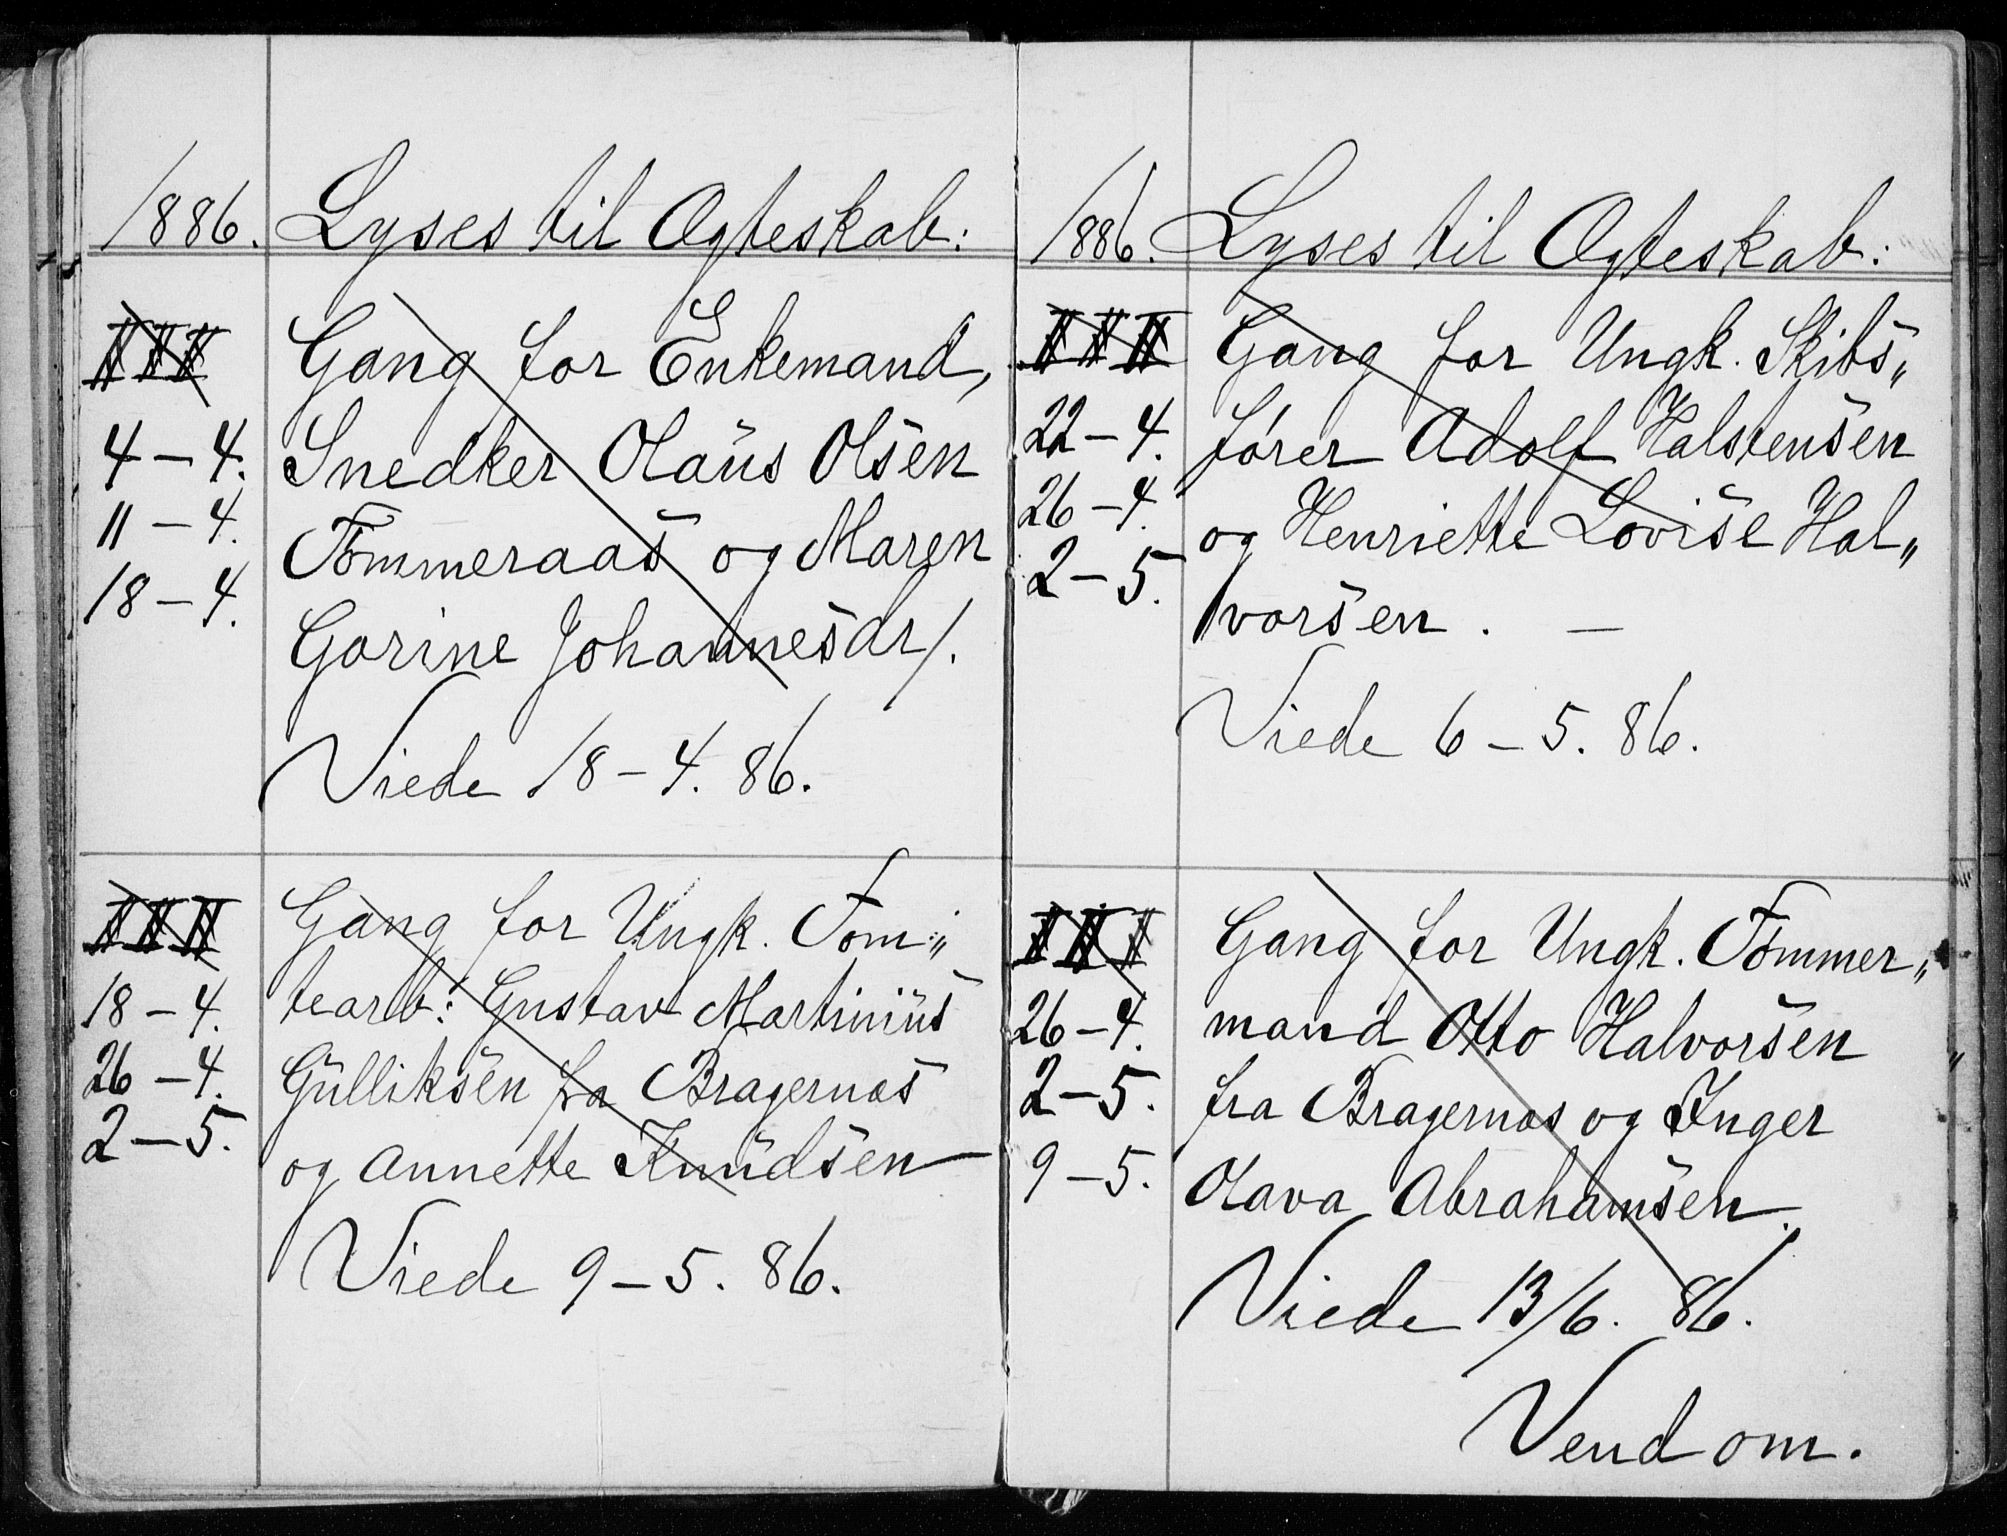 1886. Lyses til Ægteskab:
III Gang for Enkemand,
4–4. Snedker Olaus Olsen
11–4. Tömmeraas og Maren
18–4. Gorine Johannesdr/.
Viede 18–4. 86.
III Gang for Ungk. Tom„
18–4. tearb: Gustav Martinius
26–4. Gulliksen fra Bragernæs
2–5. og Annette Knudsen
Viede 9–5. 86.
1886. Lyses til Ægteskab:
III Gang for Ungk. Skibs„
22–4. fører Adolf Halstensen
26–4. og Henriette Lovise Hal„
2–5. vorsen. –
Viede 6–5. 86.
III Gang for Ungk. Tömmer„
26–4. mand Otto Halvorsen
2–5. fra Bragernæs og Inger
9–5. Olava Abrahamsen.
Viede 13/6. 86.
Vend om.